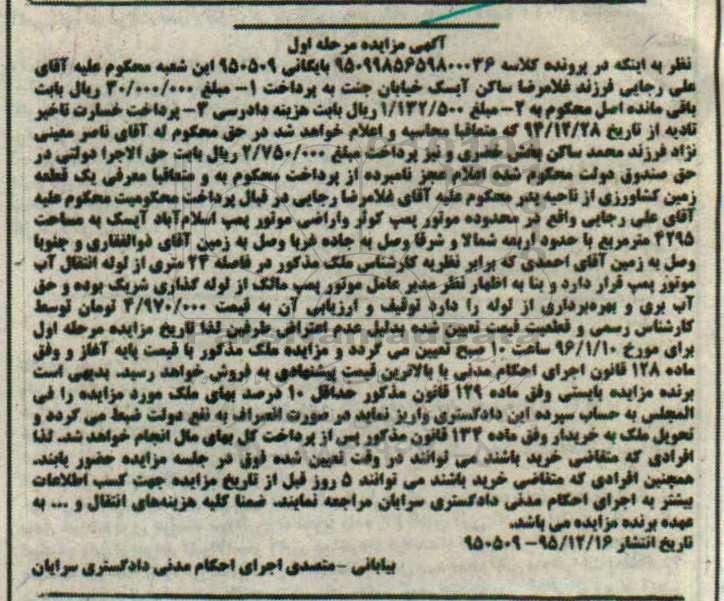 آگهی مزایده مرحله اول
نظر به اینکه در پرونده کلاسه ۹۵۰۹۹۸۵۶۵۹۸۰۰۰۳۶ بایگانی ۹۵۰۵۰۹ این شعبه محکوم علیه آقای
علی رجایی فرزند غلامرضا ساکن آیسک خیابان جنت به پرداخت ۱- مبلغ ۳۰/۰۰۰/۰۰۰ ریال بابت
باقی مانده اصل محکوم به ۲- مبلغ ۱/۱۳۲/۵۰۰ ریال بابت هزینه دادرسی ۳- پرداخت خسارت تاخیر
تادیه از تاریخ ۹۴/۱۲/۲۸ که متعاقبا محاسبه و اعلام خواهد شد در حق محکوم له آقای ناصر معینی
نژاد فرزند محمد ساکن بخش خضری و نیز پرداخت مبلغ ۲/۷۵۰/۰۰۰ ریال بابت حق الاجرا دولتی در
حق صندوق دولت محکوم شده اعلام عجز نامبرده از پرداخت محکوم به و متعاقبا معرفی یک قطعه
زمین کشاورزی از ناحیه پدر محکوم علیه آقای غلامرضا رجایی در قبال پرداخت محکومیت محکوم علیه
آقای علی رجایی واقع در محدوده موتور پمپ کوثر واراضی موتور پمپ اسلام‌آباد آیسک به مساحت
۴۲۹۵ مترمربع با حدود اربعه شمالا و شرقا وصل به جاده غربا وصل به زمین آقای ذوالفقاری و جنوبا
وصل به زمین آقای احمدی که برابر نظریه کارشناس ملک مذکور در فاصله ۲۴ متری از لوله انتقال آب
موتور پمپ قرار دارد و بنا به اظهار نظر مدیر عامل موتور پمپ مالک از لوله گذاری شریک بوده و حق
آب بری و بهره‌برداری از لوله را دارد توقیف و ارزیابی آن به قیمت ۴/۹۷۰/۰۰۰ تومان توسط
کارشناس رسمی و قطعیت قیمت تعیین شده بدلیل عدم اعتراض طرفین لذا تاریخ مزایده مرحله اول
برای مورخ ۹۶/۱/۱۰ ساعت ۱۰ صبح تعیین می گردد و مزایده ملک مذکور با قیمت پایه آغاز و وفق
ماده ۱۲۸ قانون اجرای احکام مدنی با بالاترین قیمت پیشنهادی به فروش خواهد رسید. بدیهی است
برنده مزایده بایستی وفق ماده ۱۲۹ قانون مذکور حداقل ۱۰ درصد بهای ملک مورد مزایده را فی
المجلس به حساب سپرده این دادگستری واریز نماید در صورت انصراف به نفع دولت ضبط می گردد و
تحویل ملک به خریدار وفق ماده ۱۳۴ قانون مذکور پس از پرداخت کل بهای مال انجام خواهد شد. لذا
افرادی که متقاضی خرید باشند می توانند در وقت تعیین شده فوق در جلسه مزایده حضور یابند.
همچنین افرادی که متقاضی خرید باشند می توانند ۵ روز قبل از تاریخ مزایده جهت کسب اطلاعات
بیشتر به اجرای احکام مدنی دادگستری سرایان مراجعه نمایند. ضمنا کلیه هزینه‌های انتقال و ... به
عهده برنده مزایده می باشد.
تاریخ انتشار ۹۵/۱۲/۱۶- ۹۵۰۵۰۹
بیابانی -متصدی اجرای احکام مدنی دادگستری سرایان